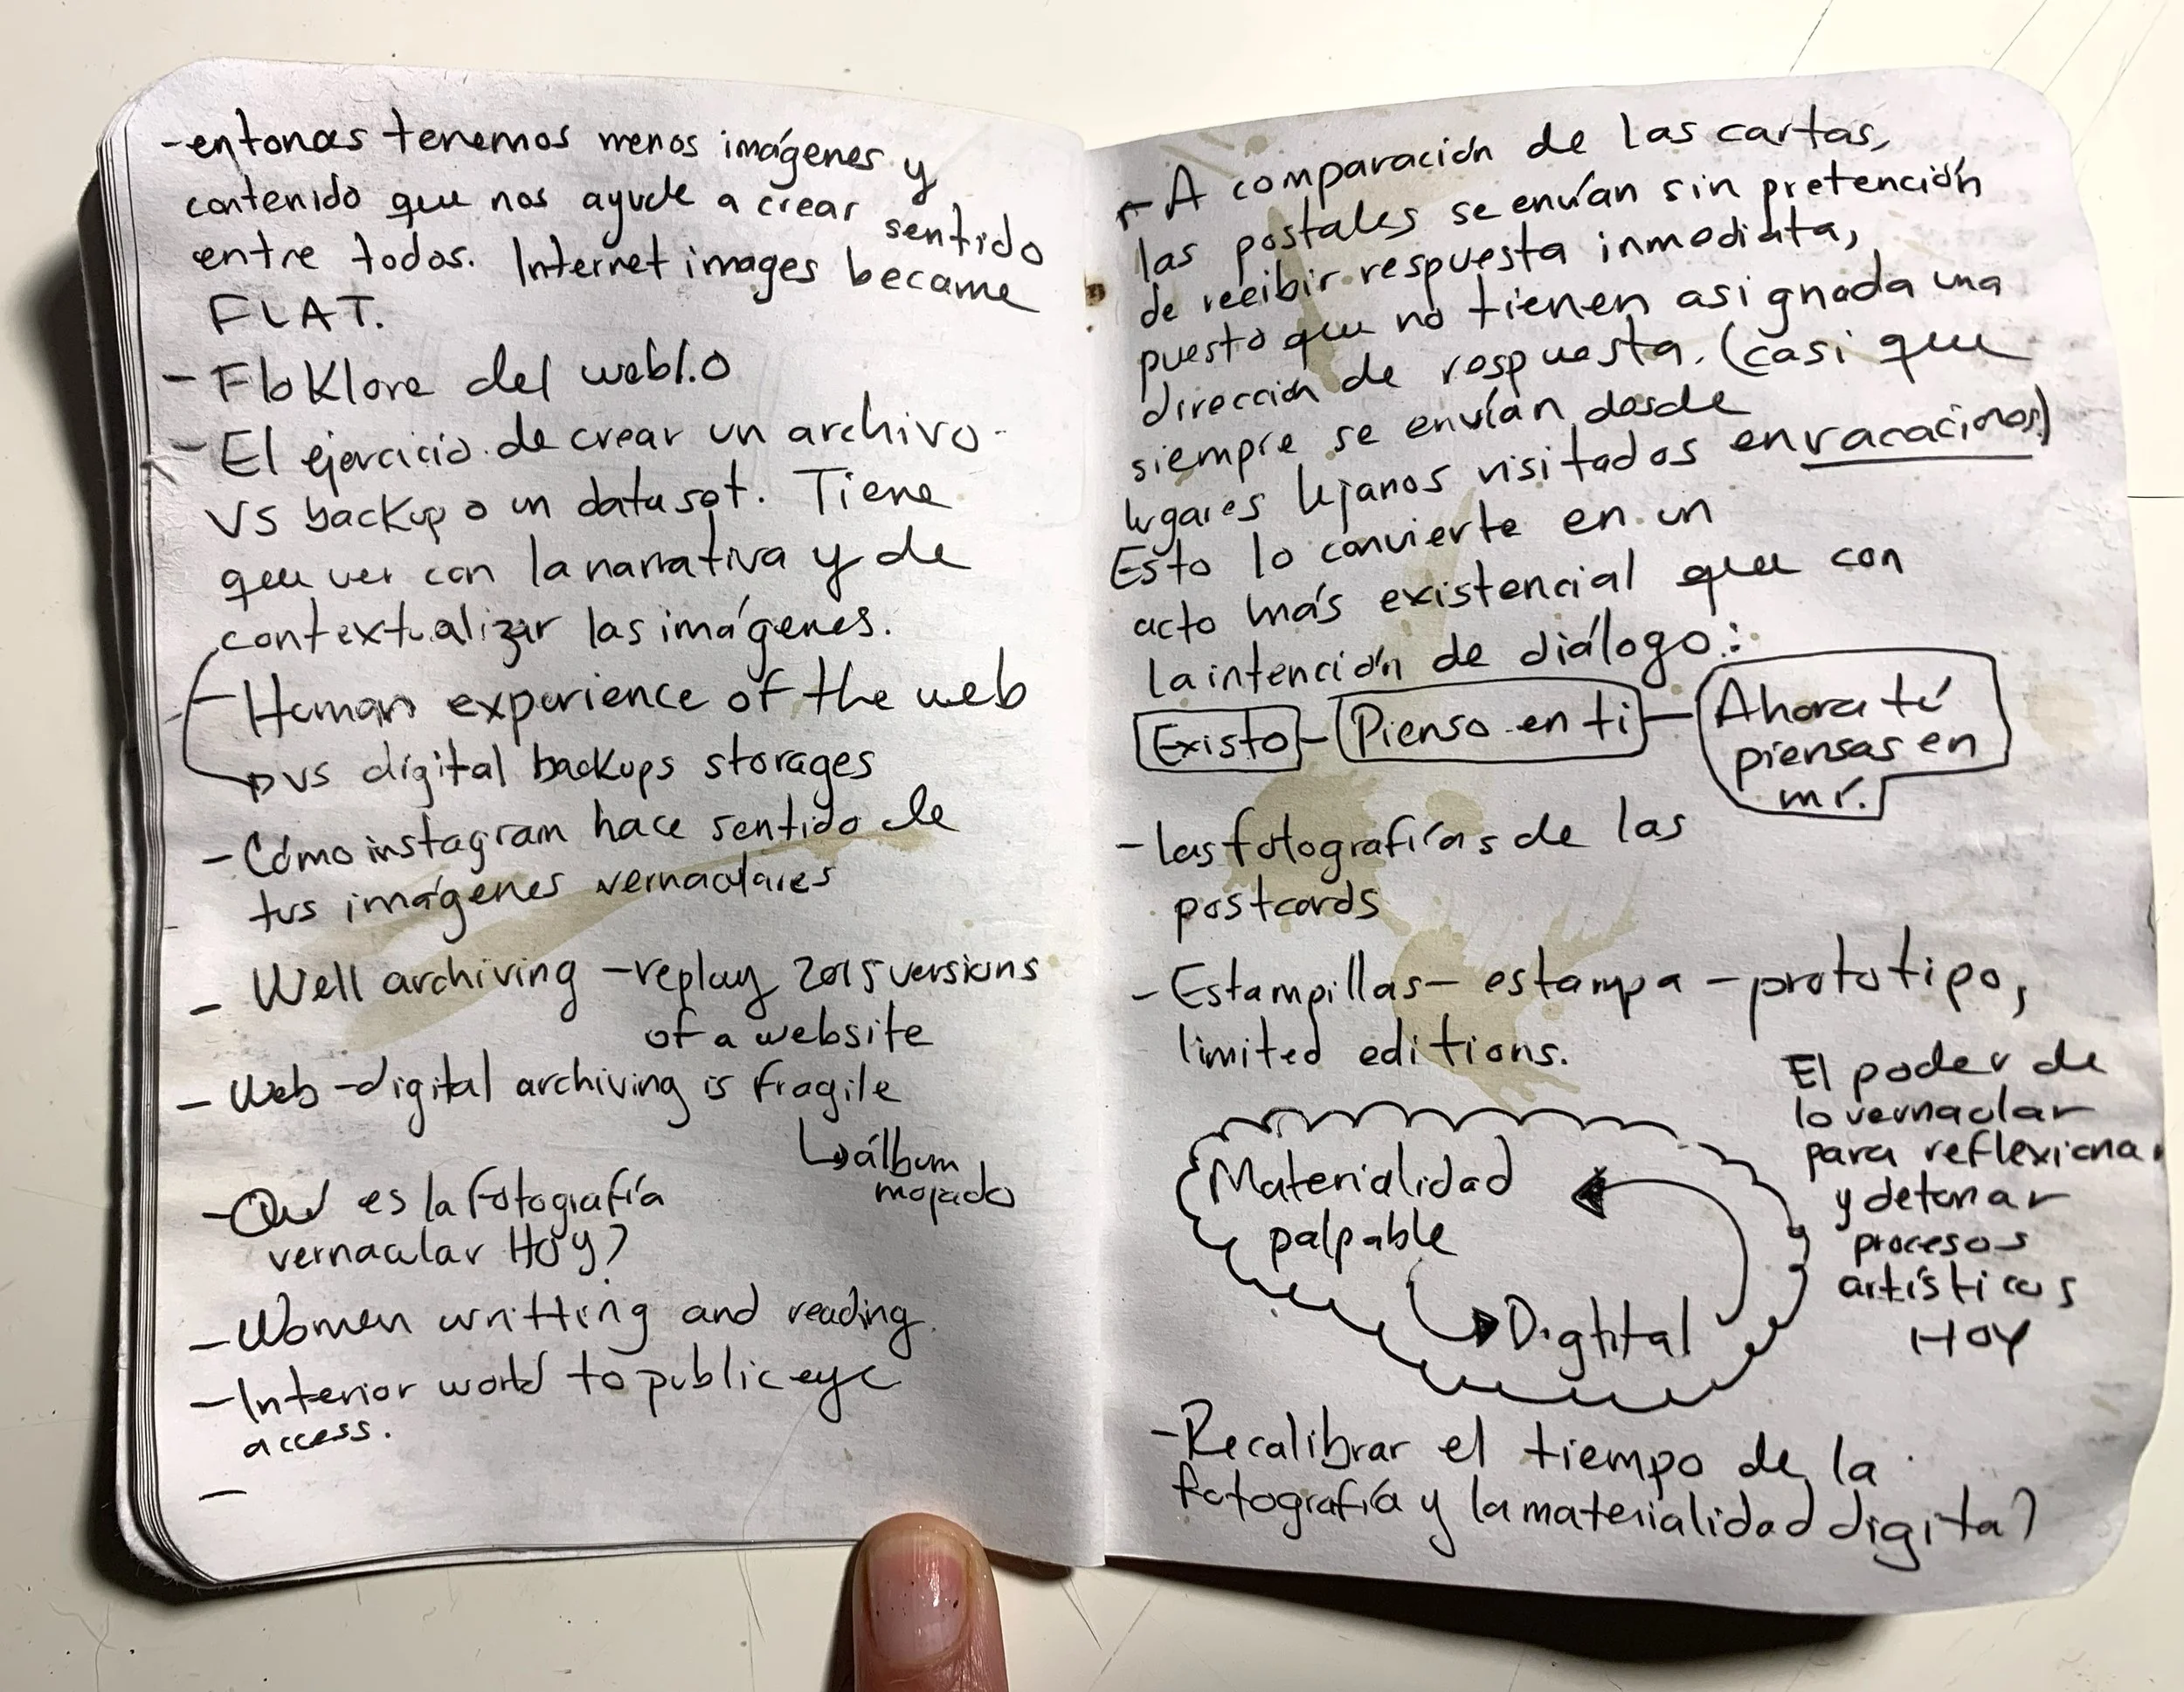 -entonces tenemos menos imágenes y
contenido que nos ayude a crear sentido
entre todos. Internet images became
FLAT.
- Floklore del web1.0
- El ejercicio de crear un archivo
VS backup o un dataset. Tiene
que ver con la narrativa y de
contextualizar las imágenes.
- Human experience of the web
vs digital backups storages
- Cómo instagram hace sentido de
tus imágenes vernaculares
- Well archiving - replay 2015 versions
of a website
- Web-digital archiving is fragile
↳ álbum
mojado
- Qué es la fotografía
vernacular HOY?
- Women writting and reading.
- Interior world to public eye
access.
-
- A comparación de las cartas,
las postales se envían sin pretención
de recibir respuesta inmediata,
puesto que no tienen asignada una
dirección de respuesta. (casi que
siempre se envían desde
lugares lejanos visitados en vacaciones)
Esto lo convierte en un
acto más existencial que con
la intención de diálogo:
Existo - Pienso en ti - Ahora tú
piensas en
mí.
- las fotografías de las
postcards
- Estampillas - estampa - prototipo,
limited editions.
El poder de
lo vernacular
para reflexionar
y detonar
procesos
artísticos
HOY
Materialidad
palpable
Digtital
- Recalibrar el tiempo de la
fotografía y la materialidad digital?